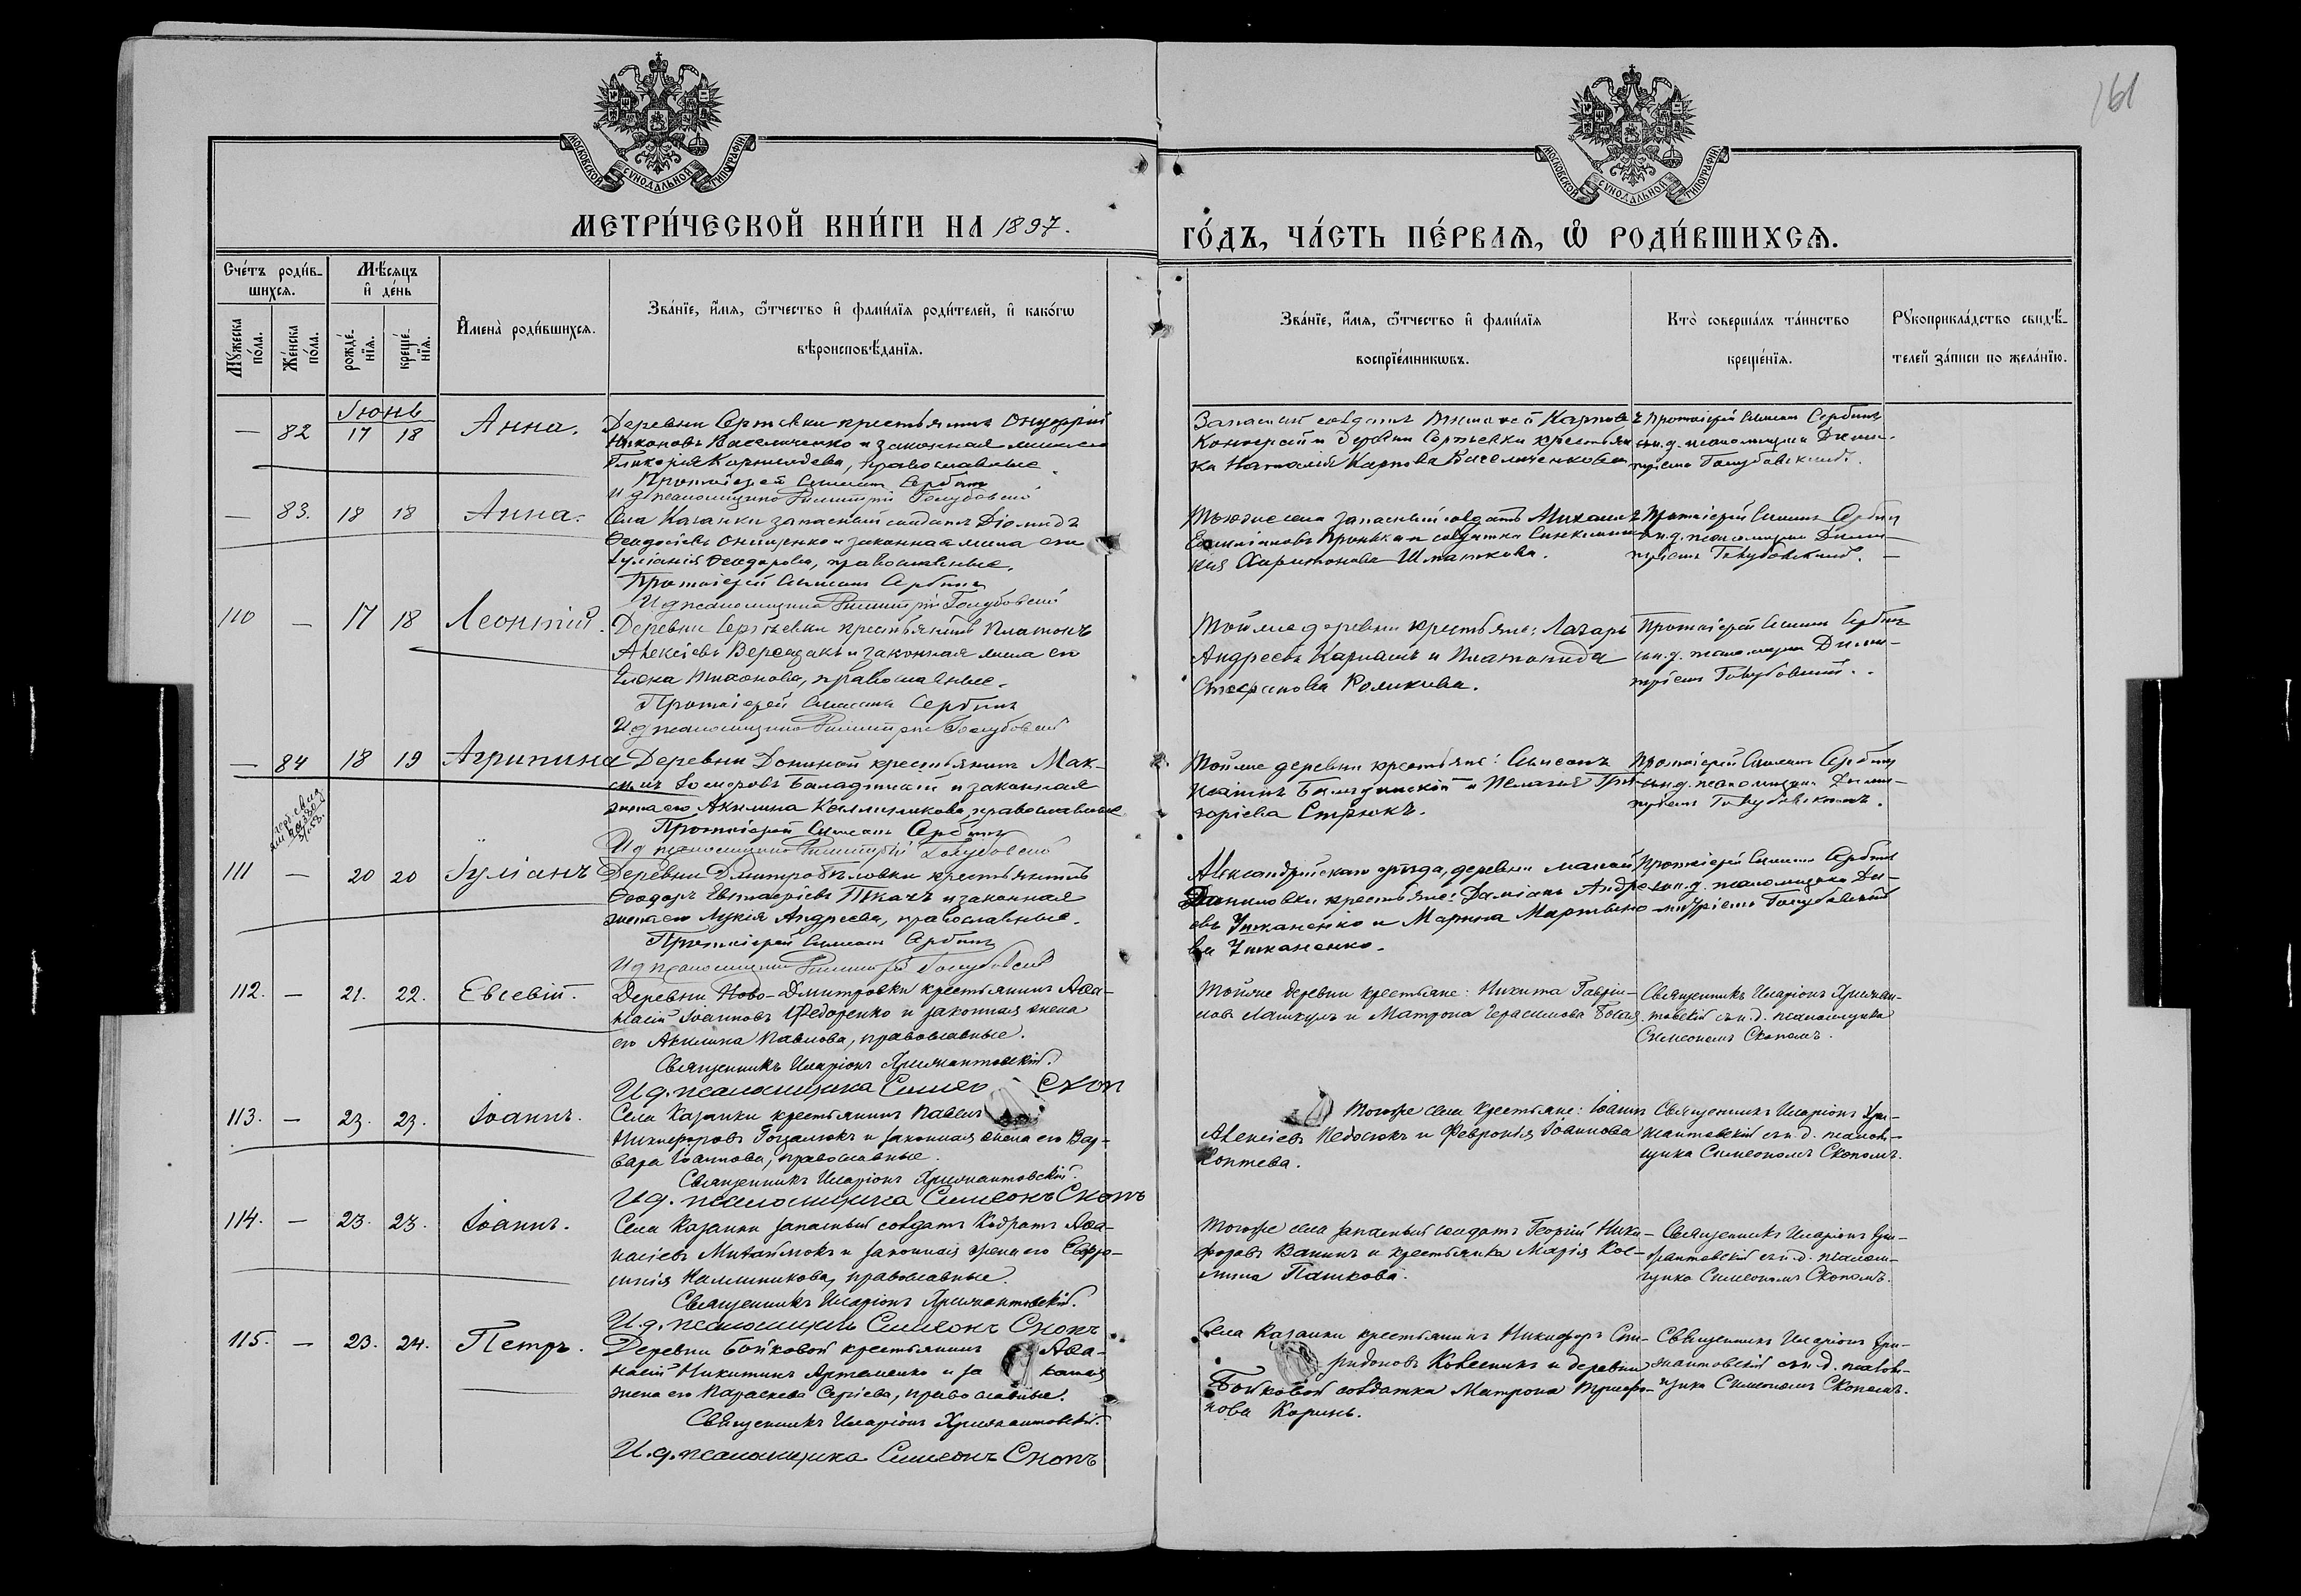 161
МОСКОВСКОЙ СѴНОДАЛЬНОЙ ТИПОГРАФІИ.
МОСКОВСКОЙ СѴНОДАЛЬНОЙ ТИПОГРАФІИ.
МЕТРИ́ЧЕСКОЙ КНИ́ГИ НА 1897.
ГО́ДЪ, ЧА́СТЬ ПЕ́РВАѦ, Ѡ РОДИ́ВШИХСѦ.
Сче́тъ роди́в-
шихсѧ.
Мꙋ́жеска по́ла.
Же́нска по́ла.
Мѣ́сѧцъ
и҆ де́нь
рожде́-
нїѧ.
креще́-
нїѧ.
И҆мена̀ роди́вшихсѧ.
Зва́нїе, и҆́мѧ, ѻ҆́тчество и҆ фами́лїѧ роди́телей, и҆ како́гѡ
вѣроисповѣ́данїѧ.
Зва́нїе, и҆́мѧ, ѻ҆́тчество и҆ фами́лїѧ
воспрїе́мникѡвъ.
Кто̀ соверша́лъ та́инство
креще́нїѧ.
Рꙋкоприкла́дство свидѣ́-
телей за́писи по жела́нїю.
Іюнь
— 82 17 18 Анна.
Деревни Сергѣевки крестьянинъ Онуфрій
Никоновъ Василиченко и законная жена его
Гликерія Корнилдева, православные.
Протоіерей Симеонъ Сербинъ
И д псаломщика Димитрій Голубовскій
Запасный солдатъ Тимофей Карповъ
и Деревни Сергѣевки крестьян
ка Наталія Карпова Василиченкова
Протоіерей Симеонъ Сербинъ
съ и.д. псаломщика Дими-
тріемъ Голубовскимъ.
— 83. 18 18 Анна.
Села Казанки запасный солдатъ Діомидъ
Ѳеодосіевъ Онищенко и законная жена его
Іуліанія Ѳеодорова, православные.
Протоіерей Симеонъ Сербинъ
И д псаломщика Димитрій Голубовскій
Того же села запасный солдатъ Михаилъ
и солдатка
Харитонова Шматкова.
Протоіерей Симеонъ Сербинъ
съ и.д. псаломщика Дими-
тріемъ Голубовскимъ. —
110 — 17 18 Леонтій.
Деревни Сергѣевки крестьянинъ Платонъ
Алексіевъ и законная жена его
Елена православные.
Протоіерей Симеонъ Сербинъ
И д псаломщика Димитрій Голубовскій
Той же деревни крестьяне: Лазарь
Андреевъ и Платонида
Стефанова
Протоіерей Симеонъ Сербинъ
съ и.д. псаломщика Дими-
тріемъ Голубовскимъ.
— 84 18 19 Агрипина
Деревни крестьянинъ Мак-
симъ и законная
жена его Акилина Каллиникова, православные
Протоіерей Симеонъ Сербинъ
И д псаломщика Димитрій Голубовскій
Той же деревни крестьяне: Симеонъ
и Пелагія Гри-
горіева Стрюкъ.
Протоіерей Симеонъ Сербинъ
съ и.д. псаломщика Дими-
тріемъ Голубовскимъ.
111 — 20 20 Іуліанъ
Деревни Дмитробѣловки крестьянинъ
Ѳеодоръ Евстафіевъ Ткачъ и законная
жена его Лукія Андреева, православные.
Протоіерей Симеонъ Сербинъ
И д псаломщика Димитрій Голубовскій
Александрійскаго уѣзда, деревни малой
Даниловки крестьяне: Даміанъ Андре-
евъ и Марина Мартыно-
ва
Протоіерей Симеонъ Сербинъ
съ и.д. псаломщика Ди-
митріемъ Голубовскимъ
112. — 21. 22. Евсевій.
Деревни Ново-Дмитровки крестьянинъ Аѳа-
насій Іоанновъ Федоренко и законная жена
его Акилина Павлова, православные.
Священникъ Иларіонъ Хрисанфовскій.
И.д. псаломщика Симео Скоп
Той же деревни крестьяне: Никита Гавріи-
ловъ Лашкулъ и Матрона Герасимова Босая.
Священникъ Иларіонъ
съ и.д. псаломщика
Симеономъ Скопомъ.
113. — 23. 23. Іоаннъ.
Села Казанки крестьянинъ Павелъ
Никифоровъ и законная жена его Вар-
вара Іоаннова, православные.
Священникъ Иларіонъ
И.д. псаломщика Симеонъ Скопъ
Того же села крестьяне: Іоаннъ
Алексіевъ Недосюкъ и Февронія Іоаннова
Коптева.
Священникъ Иларіонъ
съ и.д. псалом-
щика Симеономъ Скопомъ.
114. — 23. 23. Іоаннъ.
Села Казанки запасный солдатъ Кодратъ Аѳа-
насіевъ и законная жена его Евфро-
синія Каллиникова, православные.
Священникъ Иларіонъ
И.д. псаломщика Симеонъ Скопъ
Того же села запасный солдатъ Георгій Ники-
форовъ Ванинъ и крестьянка Марія Кос-
мина Пашкова.
Священникъ Иларіонъ
съ и.д. псалом-
щика Симеономъ Скопомъ.
115. — 23. 24. Петръ.
Деревни Бойковой крестьянинъ Аѳа-
насій Никитинъ Артеменко и за конная
жена его Параскева Сергіева, православные.
Священникъ Иларіонъ
И.д. псаломщика Симеонъ Скопъ
Села Казанки крестьянинъ Никифоръ Спи-
ридоновъ Колесникъ и деревни
Бойковой солдатка Матрона Трифо-
нова Коринь.
Священникъ Иларіонъ
съ и.д. псалом-
щика Симеономъ Скопомъ.